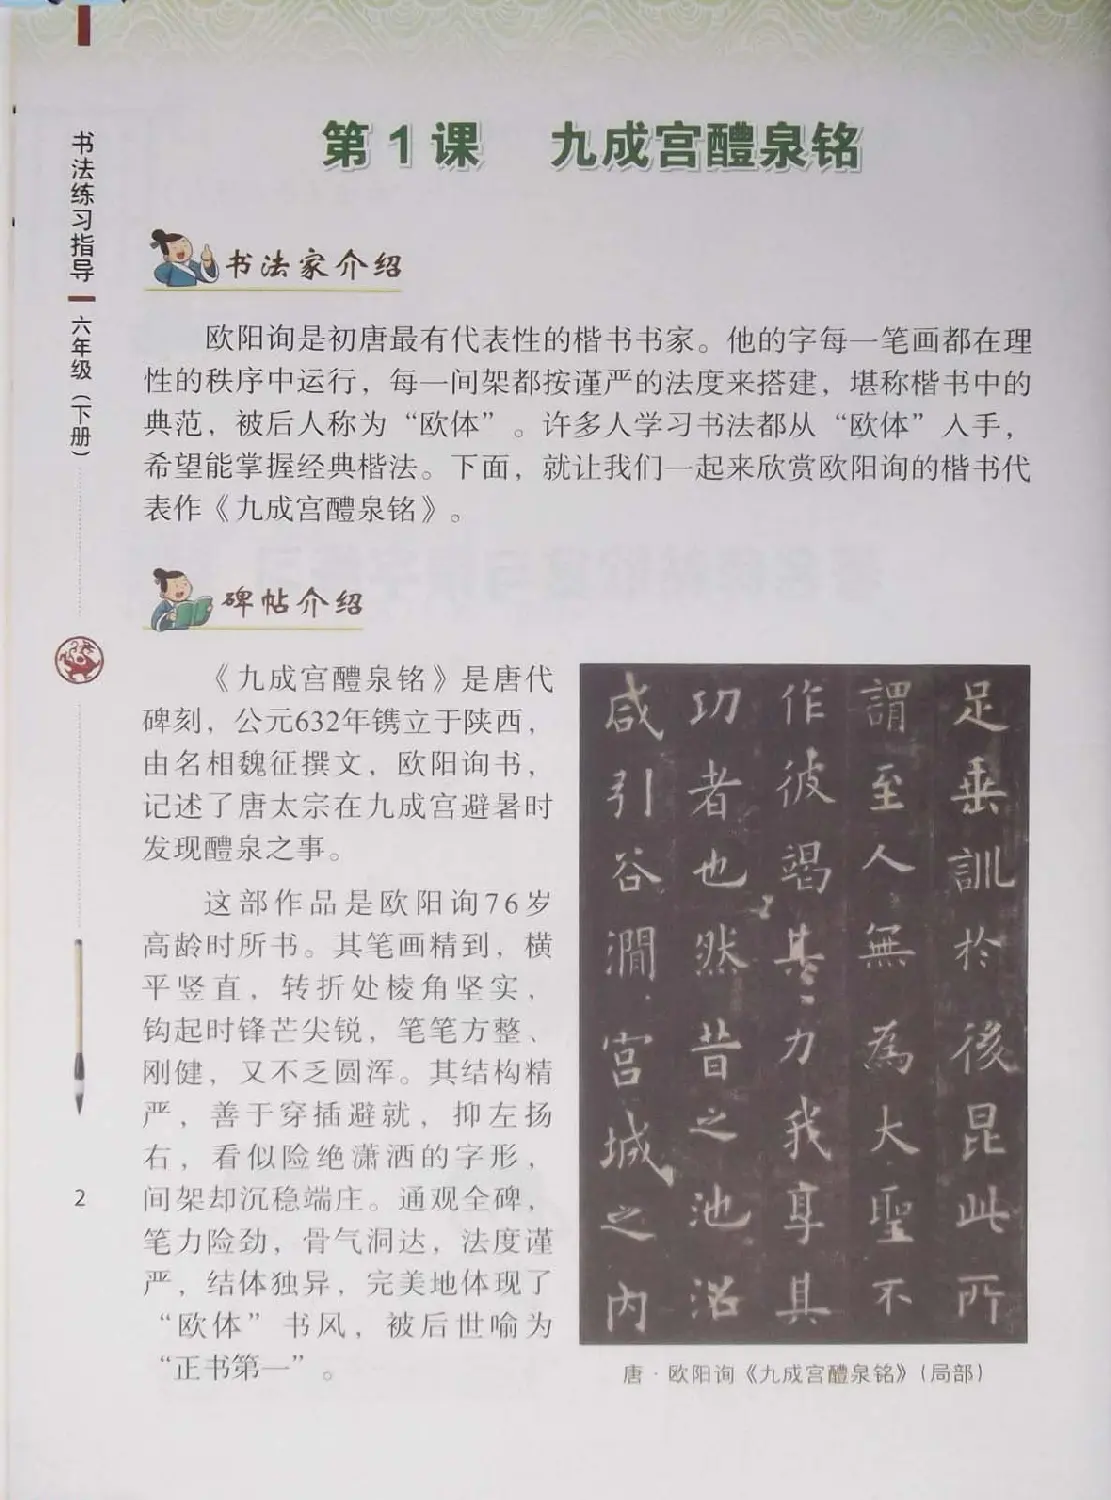 书法练习指导
六年级（下册）
2
第1课 九成宫醴泉铭
书法家介绍
欧阳询是初唐最有代表性的楷书书家。他的字每一笔画都在理
性的秩序中运行，每一间架都按谨严的法度来搭建，堪称楷书中的
典范，被后人称为“欧体”。许多人学习书法都从“欧体”入手，
希望能掌握经典楷法。下面，就让我们一起来欣赏欧阳询的楷书代
表作《九成宫醴泉铭》。
碑帖介绍
《九成宫醴泉铭》是唐代
碑刻，公元632年镌立于陕西，
由名相魏征撰文，欧阳询书，
记述了唐太宗在九成宫避暑时
发现醴泉之事。
这部作品是欧阳询76岁
高龄时所书。其笔画精到，横
平竖直，转折处棱角坚实，
钩起时锋芒尖锐，笔笔方整、
刚健，又不乏圆浑。其结构精
严，善于穿插避就，抑左扬
右，看似险绝潇洒的字形，
间架却沉稳端庄。通观全碑，
笔力险劲，骨气洞达，法度谨
严，结体独异，完美地体现了
“欧体”书风，被后世喻为
“正书第一”。
足垂訓於後昆此所
謂至人無為大聖不
作彼竭其力我享其
功者也然昔之池沼
咸引谷澗宫城之内
唐·欧阳询《九成宫醴泉铭》（局部）